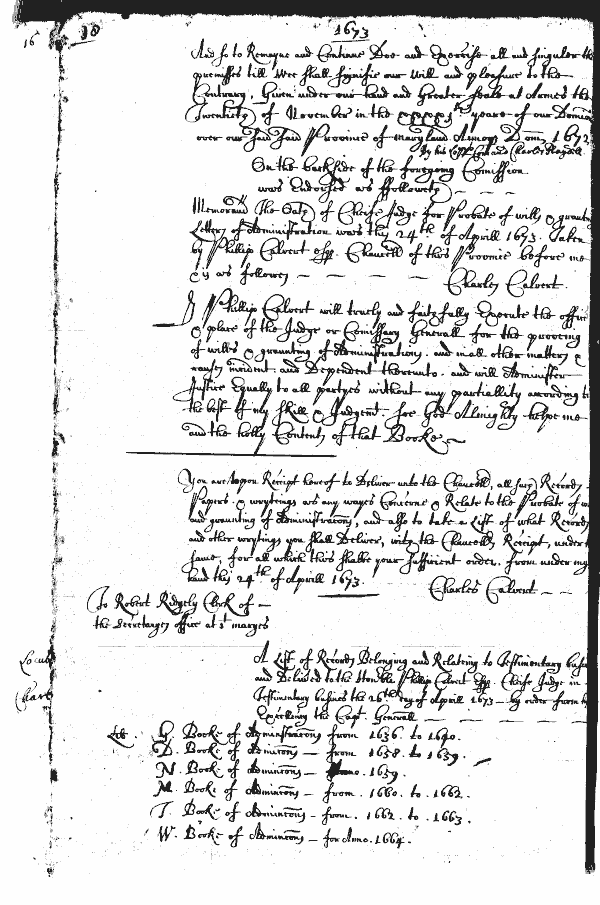 16
18
1673
And so to Remayne and Continue Doe and Exercise all and singuler the
premisses till Wee shall signifie our Will and pleasure to the
Contrary. Given under our hand and Greater Seale at Armes the
Twentieth of November in the xxxxj th yeare of our Domin
over our said Province of Maryland Annoq Dom 1672
On the backside of the foregoing Comission
was Endorsed as ffolloweth
Memorand The Oath of Cheife Judge for Probate of wills & graunting
Letters of Administration was this 24th of Aprill 1673. Taken
by Phillip Calvert Esqr. Chancell of this Province before me
& is as followes
Charles Calvert.
I Phillip Calvert will truely and faithfully Execute the office
& place of the Judge or Comissary Generall for the prooving
of wills & graunting of Administrations. and in all other matters &
causes incident. and Dependent thereunto. and will Administer
Justice Equally to all partyes without any partiallity according to
the best of my skill & Judgent. soe God Almighty helpe me
and the holly Contents of that Booke
You are upon Receipt hereof to Deliver unto the Chancell, all such Records
Papers & wrytings as any wayes Concerne & Relate to the Probate of
and graunting of Administracons, and also to take a List of what Records
and other wrytings you shall Deliver, with the Chancellrs Receipt, under
same, for all which this shalbe your sufficient order. from under my
hand this 24th of Aprill 1673.
Charles Calvert
To Robert Ridgely Clerk of
the Secretarys office at St maryes
A List of Records Belonging and Relating to Testimentary
and Delivred to the Honble Phillip Calvert Esqr. Cheife Judge in
Testimentary busines the 26th day of Aprill 1673 by order from
Excellency the Capt Generall
Lib. G. Booke of Administracons from 1636. to 1640.
D. Booke of Admicons from 1658. to 1659.
N. Booke of Admincons Anno. 1659.
M. Booke of Admincons from. 1660. to. 1662.
T. Booke of Admincons from. 1662. to. 1663.
W. Booke of Admincons for Anno. 1664.